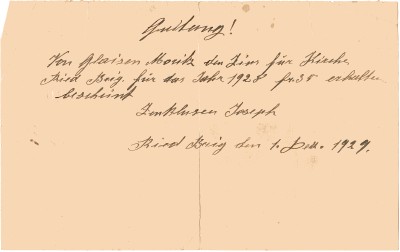 Quitung!
Von Glaisen Moritz den Zins für Kirche
Ried Brig. für das Jahr 1928 fr 35 erhalten
bescheint
Zenklusen Joseph
Ried Brig den 1. Dez. 1929.